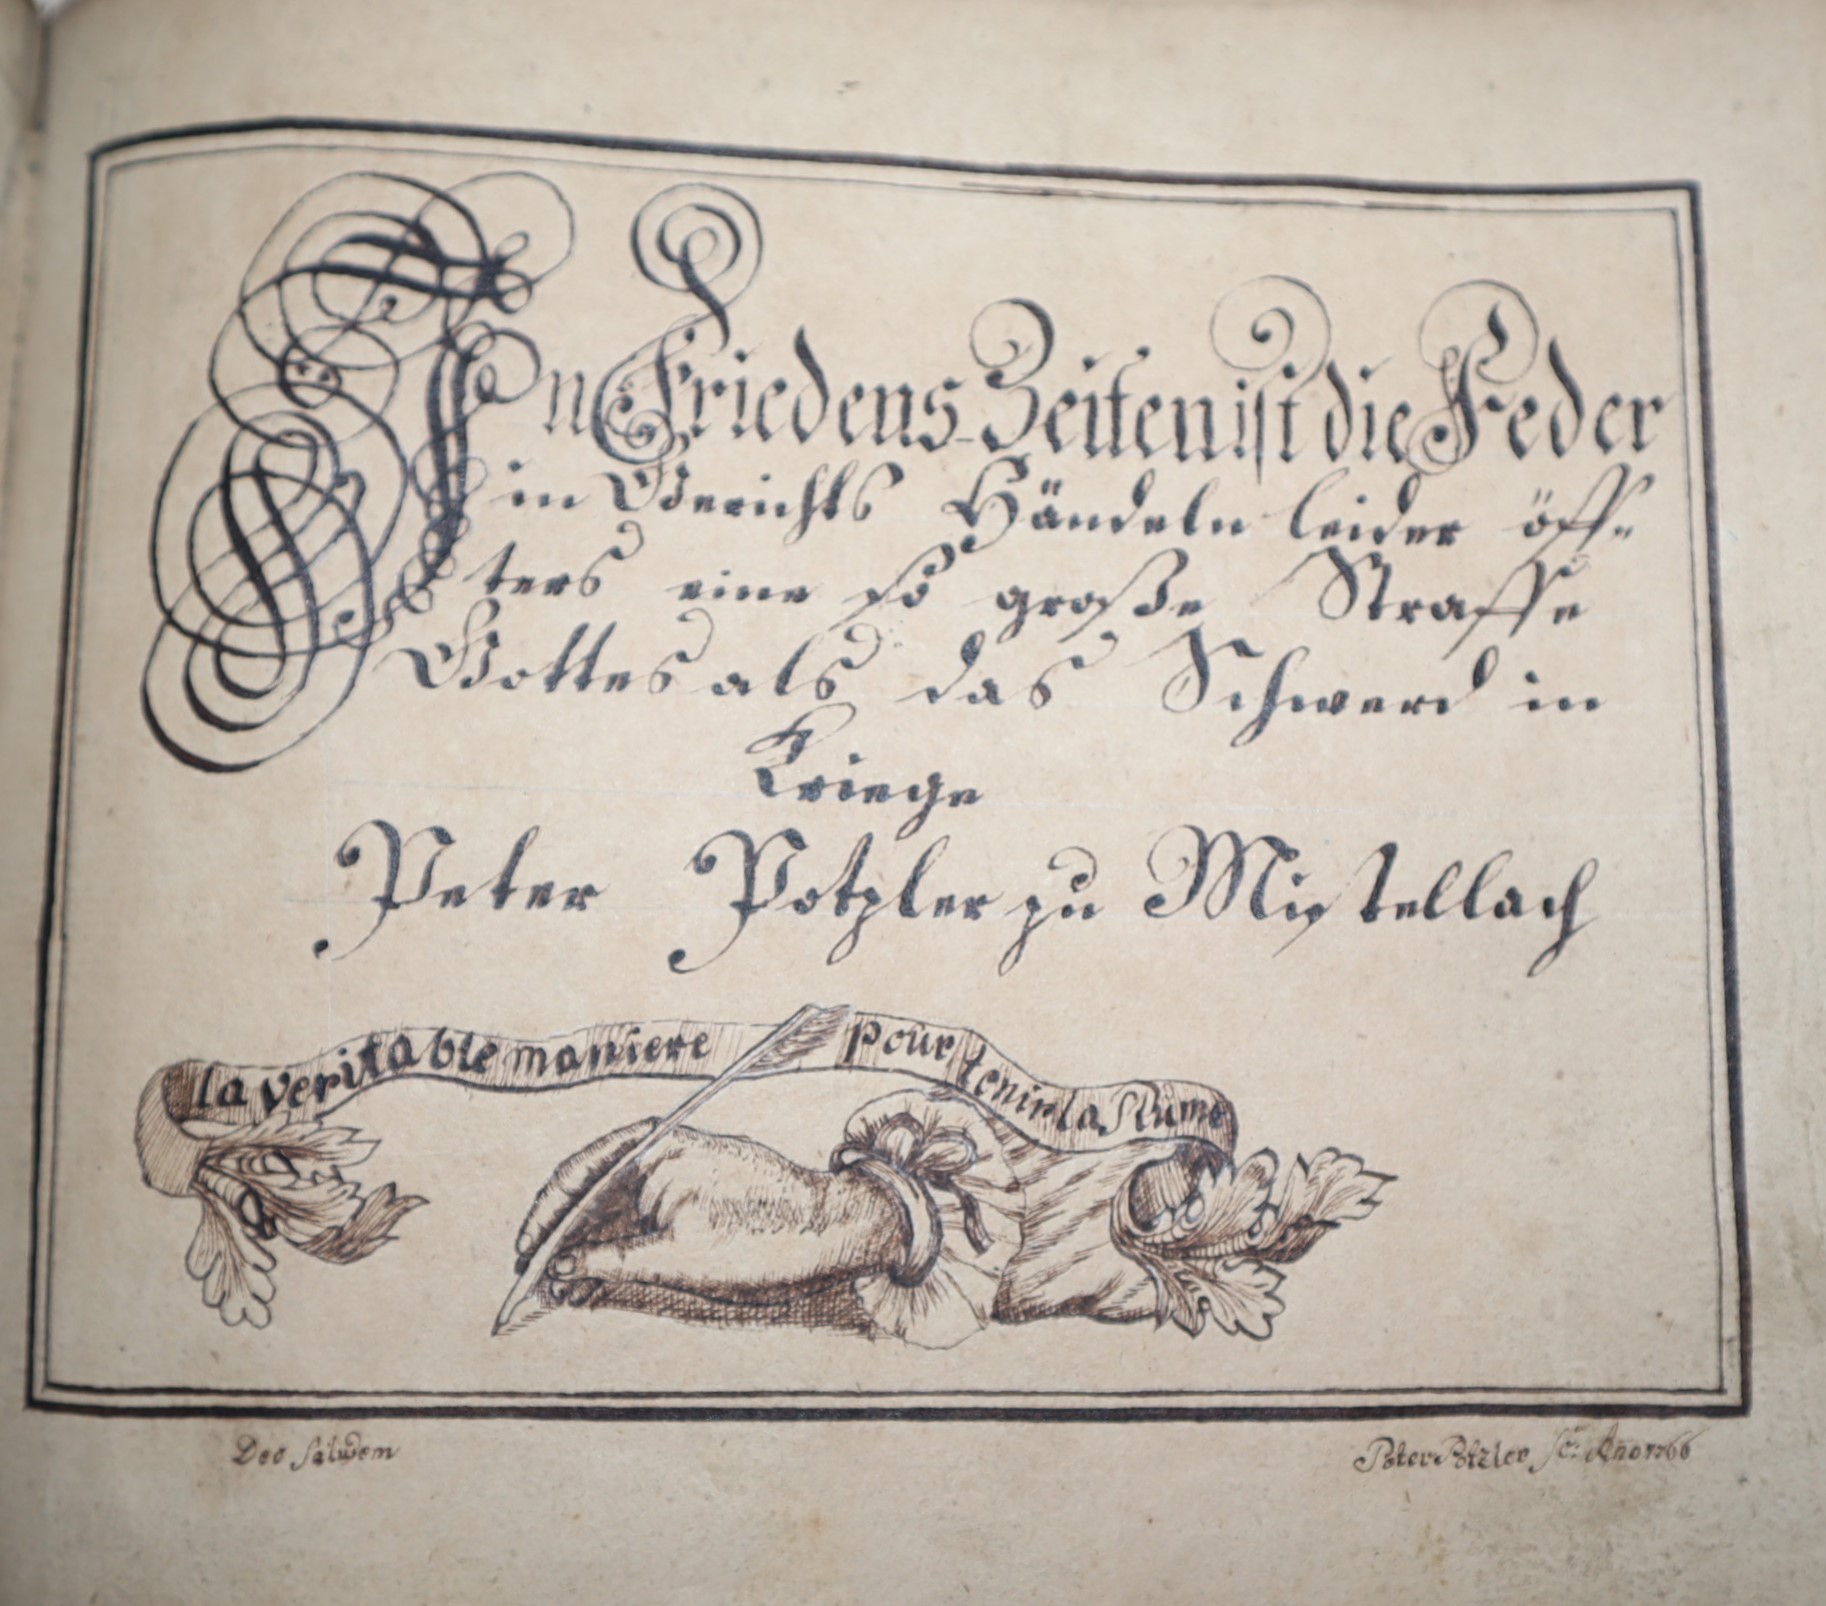 In Friedens-Zeiten ist die Feder
in Gerichts Händeln leider öff-
ters eine so große Straffe
Gottes als das Schwerd in
Kriege
Peter Potzler zu Mistellach
la veritable maniere pour tenir la Plume
Peter Potzler Sc: Año 1766